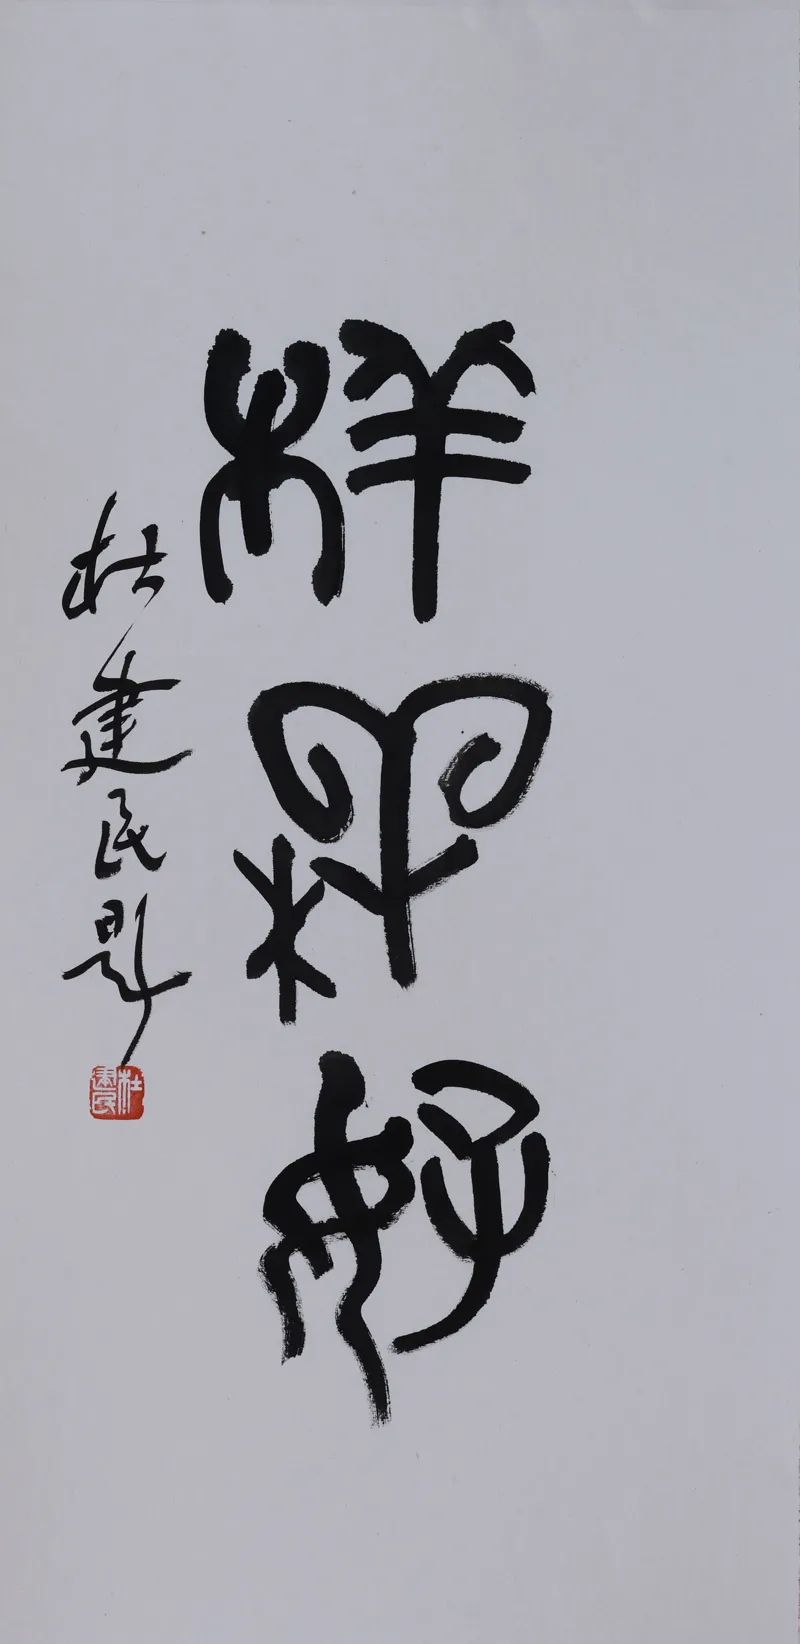 样样好
杜建民题
杜建民